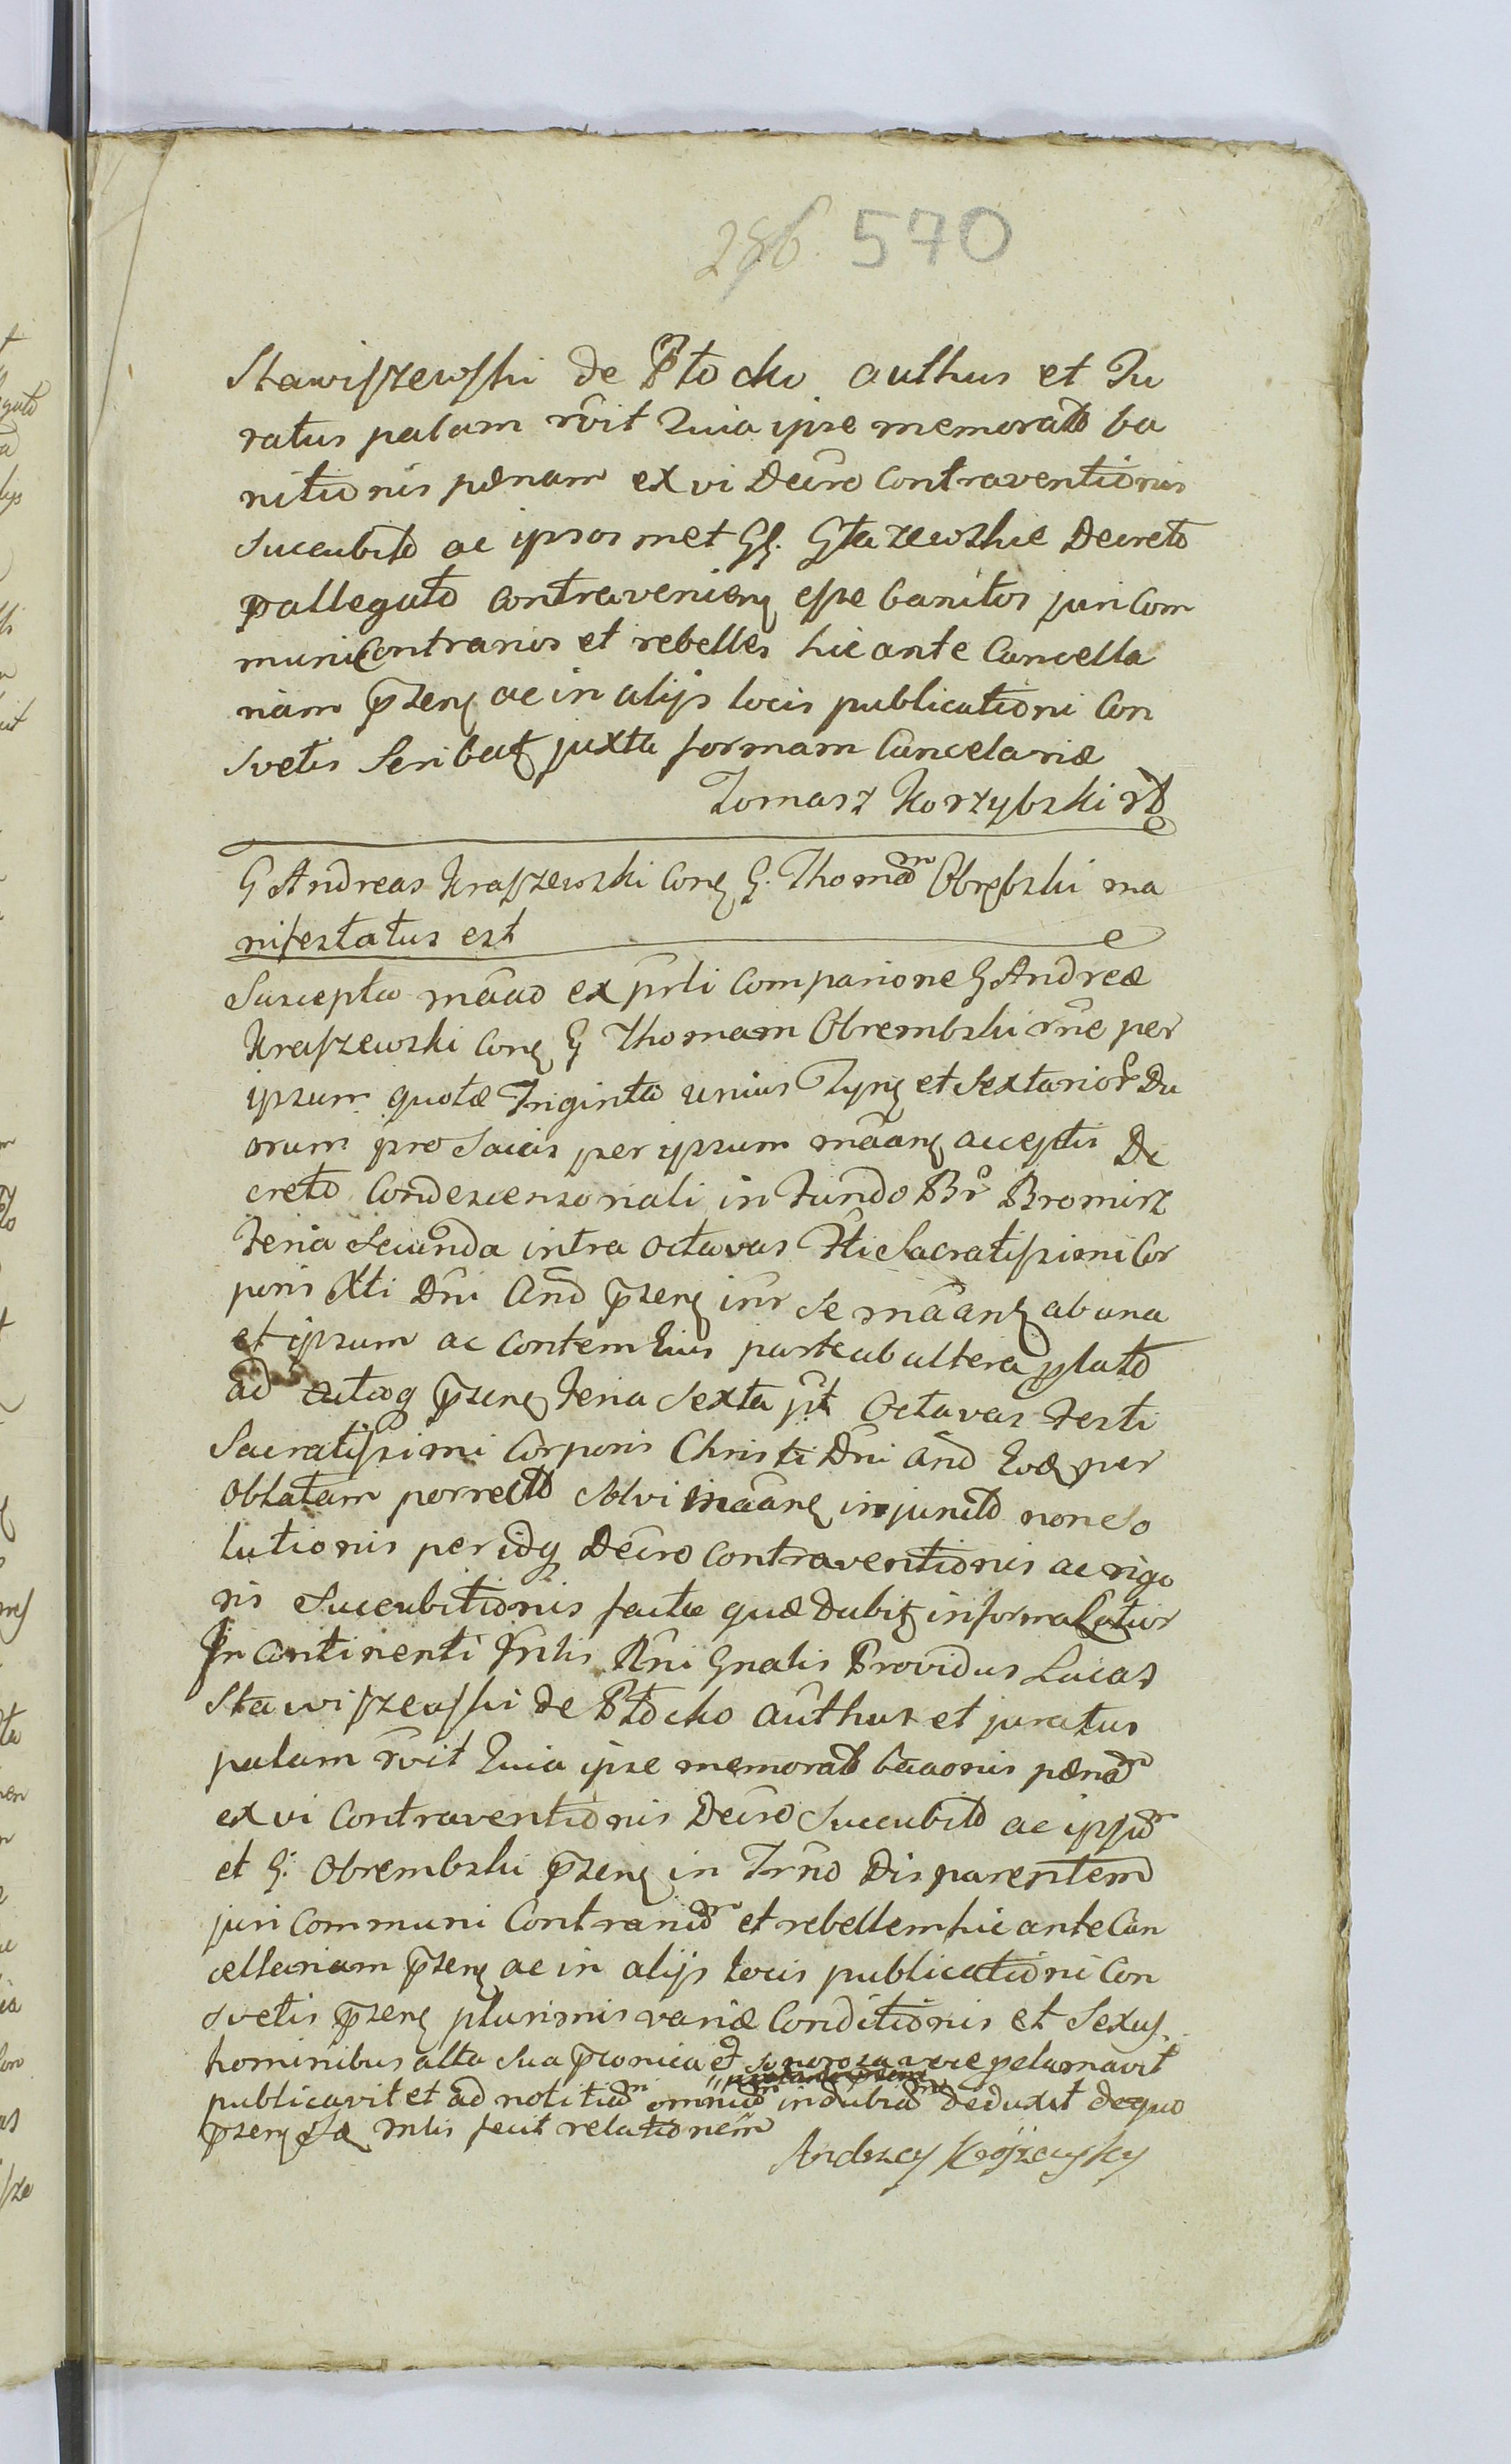 286. 570
Stawiszewski de Płocko authus et Ju
ratus palam rvit Quia ipse memorato ba
nitionis pænam ex vi Decro contraventionis
succubito ac ipsosmet GG. Głazewskie Decreto
pallegato contravenien esse banitos juri Com
muni Contrarios et rebelles hic ante Cancella
riam pzen ac in alijs locis publicationi Con
svetis Scribat juxta formam Cancelariæ
Tomasz Korzybski
G Andreas Kraszewski Con G. Thomam Obrębski ma
nifestatus est
Suscepta maao ex prli Comparione G Andreæ
Kraszewski Con G Thomam Obrembski rne per
ipsum quotæ Triginta unius Tyn et Sextarior Du
orum pro Sacis per ipsum maan acceptis De
creto Condescensoriali in Fundo Br Bromirz
Feria Secunda intra octavas Fti Sacratissimi Cor
poris Xti Dni And pzen inr se maan ab una
et ipsum ac contem Eius parte ab altera plato
ad pzen Feria Sexta pt Octavas Festi
Sacratissimi Corporis Christi Dni And Eod per
Oblatam porrecto solvi maan injuncto non so
lutionis per idq Decro contraventionis ac rigo
ris Succubitionis factæ quæ dubit informalatior
In continenti Mnlis Rni Gnalis Providus Lucas
Stawiszewski de Płocko authus et juratus
palam rvit Quia ipse memorato baaonis pænam
ex vi Contraventionis Decro Succubito ac ipsum
et G. Obrembski pzen in Trno Disparentem
juri Communi Contrarium et rebellem hic ante Can
cellariam pzen ac in alijs locis publicationi Con
svetis pzen plurimis variæ Conditionis et Sexus
hominibus alta sua pconica et sonorosa voce pclamavit
publicavit et ad notitiam omnium indubiam deduxit de quo
pzen Sæ Mlis fecit relationem